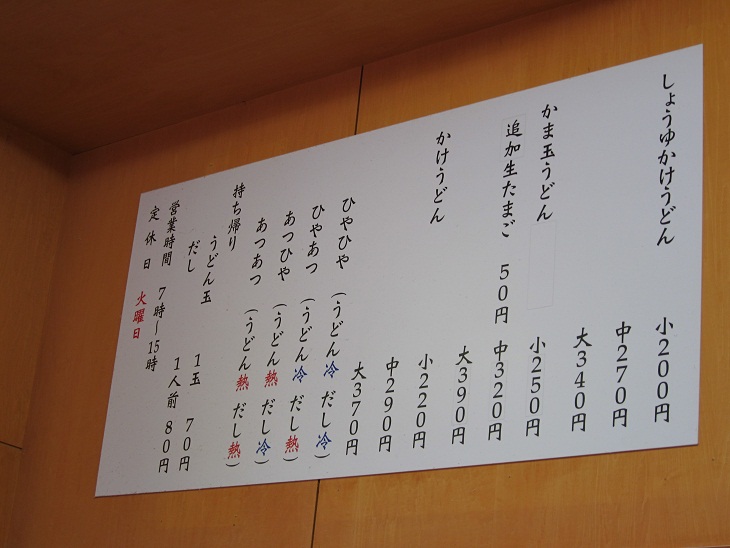 しょうゆかけうどん　小200円
中270円
大340円
かま玉うどん　小250円
追加生たまご　50円　中320円
大390円
かけうどん　小220円
中290円
大370円
ひやひや（うどん冷　だし冷）
ひやあつ（うどん冷　だし熱）
あつひや（うどん熱　だし冷）
あつあつ（うどん熱　だし熱）
持ち帰り
うどん玉　1玉　70円
だし　1人前　80円
営業時間　7時〜15時
定休日　火曜日